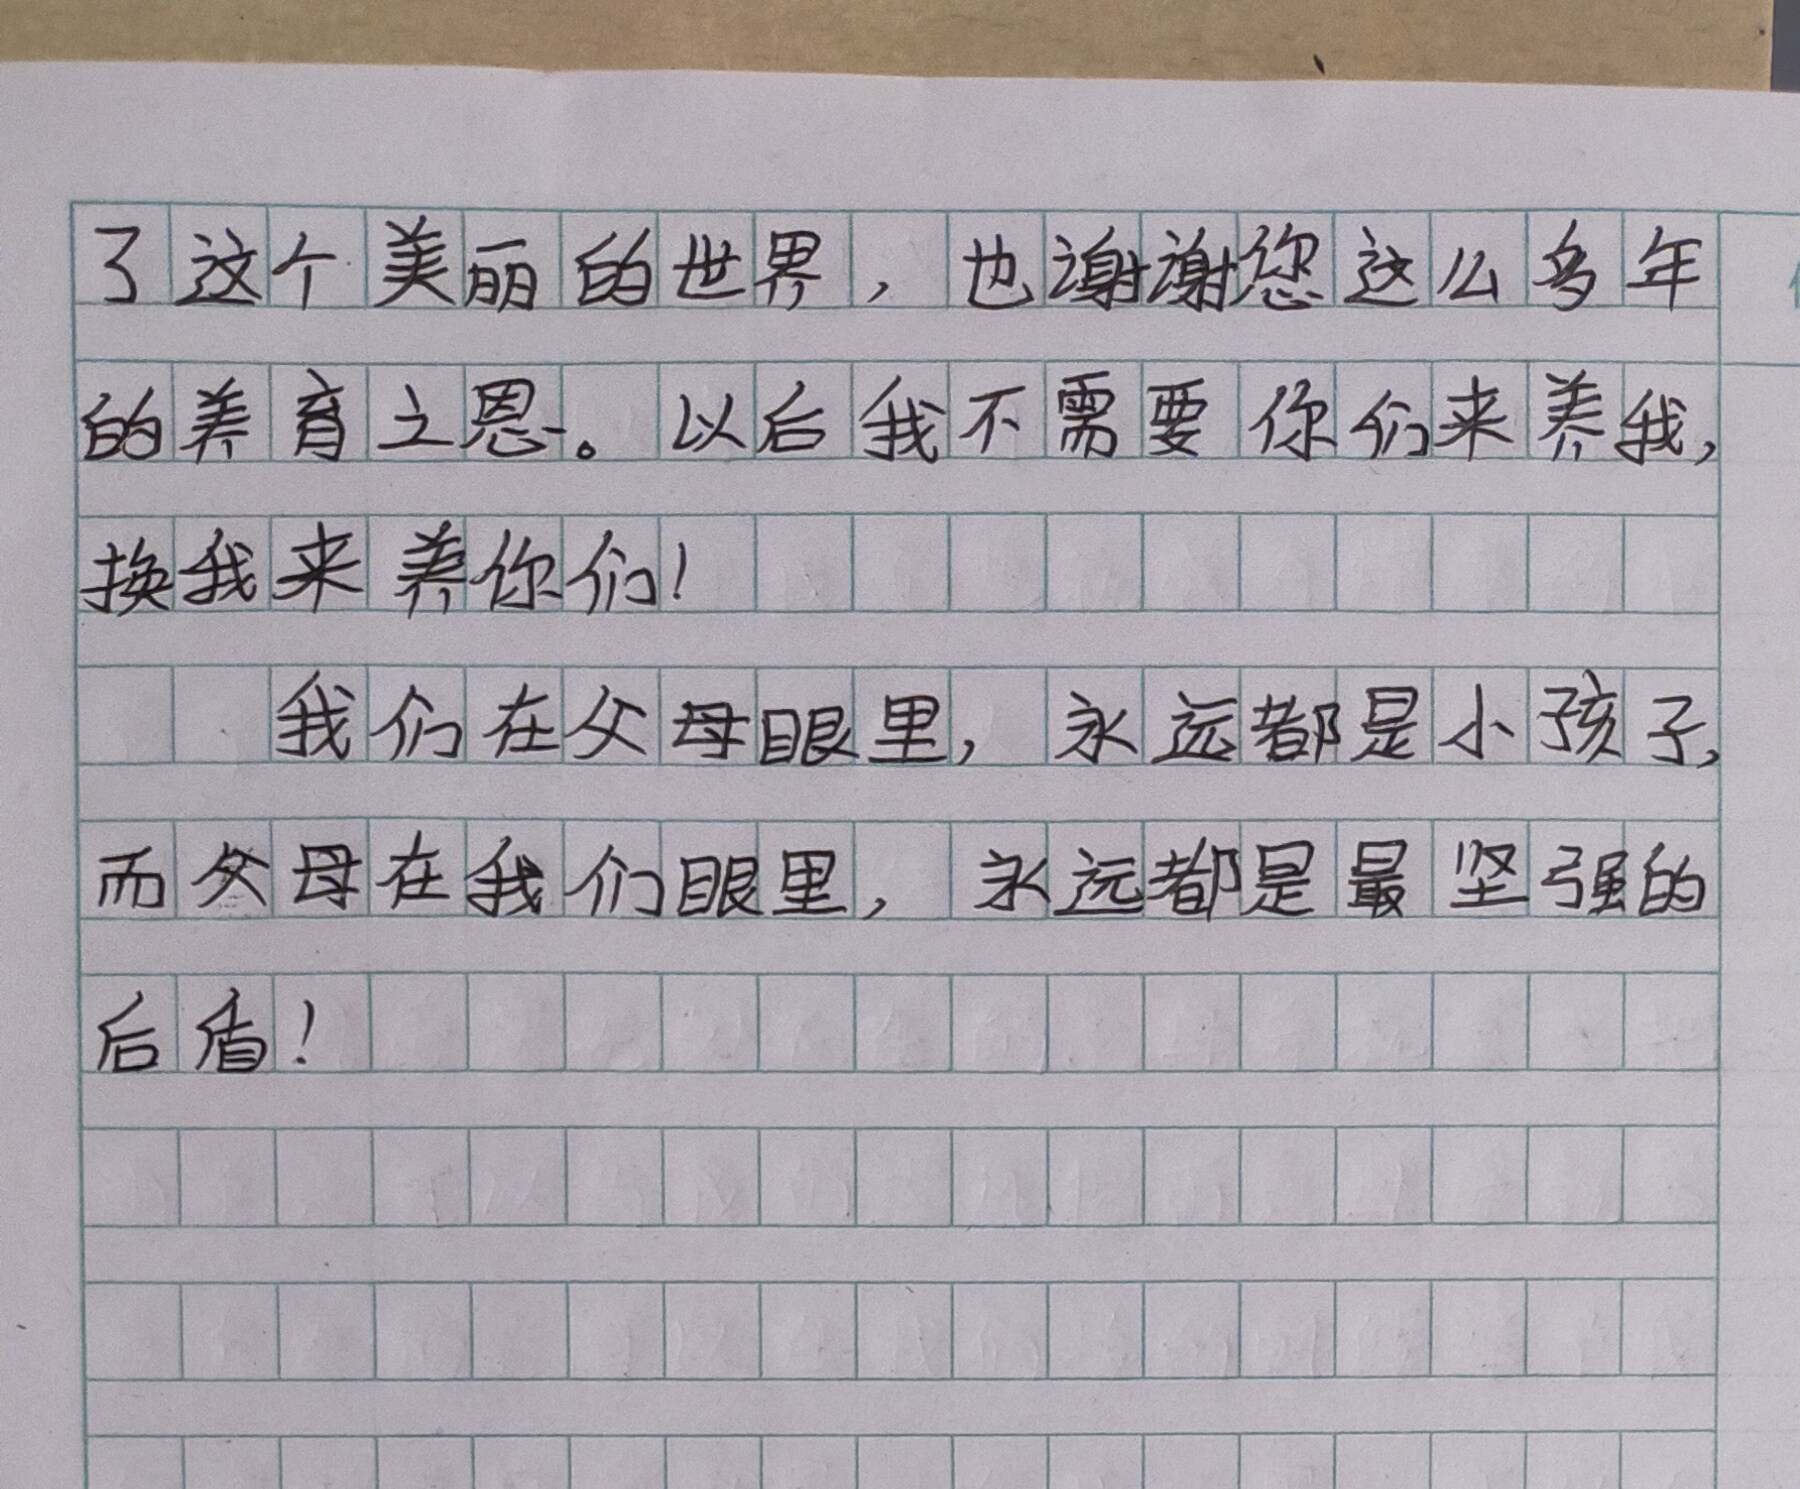 了这个美丽的世界，也谢谢您这么多年
的养育之恩。以后我不需要你们来养我，
换我来养你们！
我们在父母眼里，永远都是小孩子，
而父母在我们眼里，永远都是最坚强的
后盾！